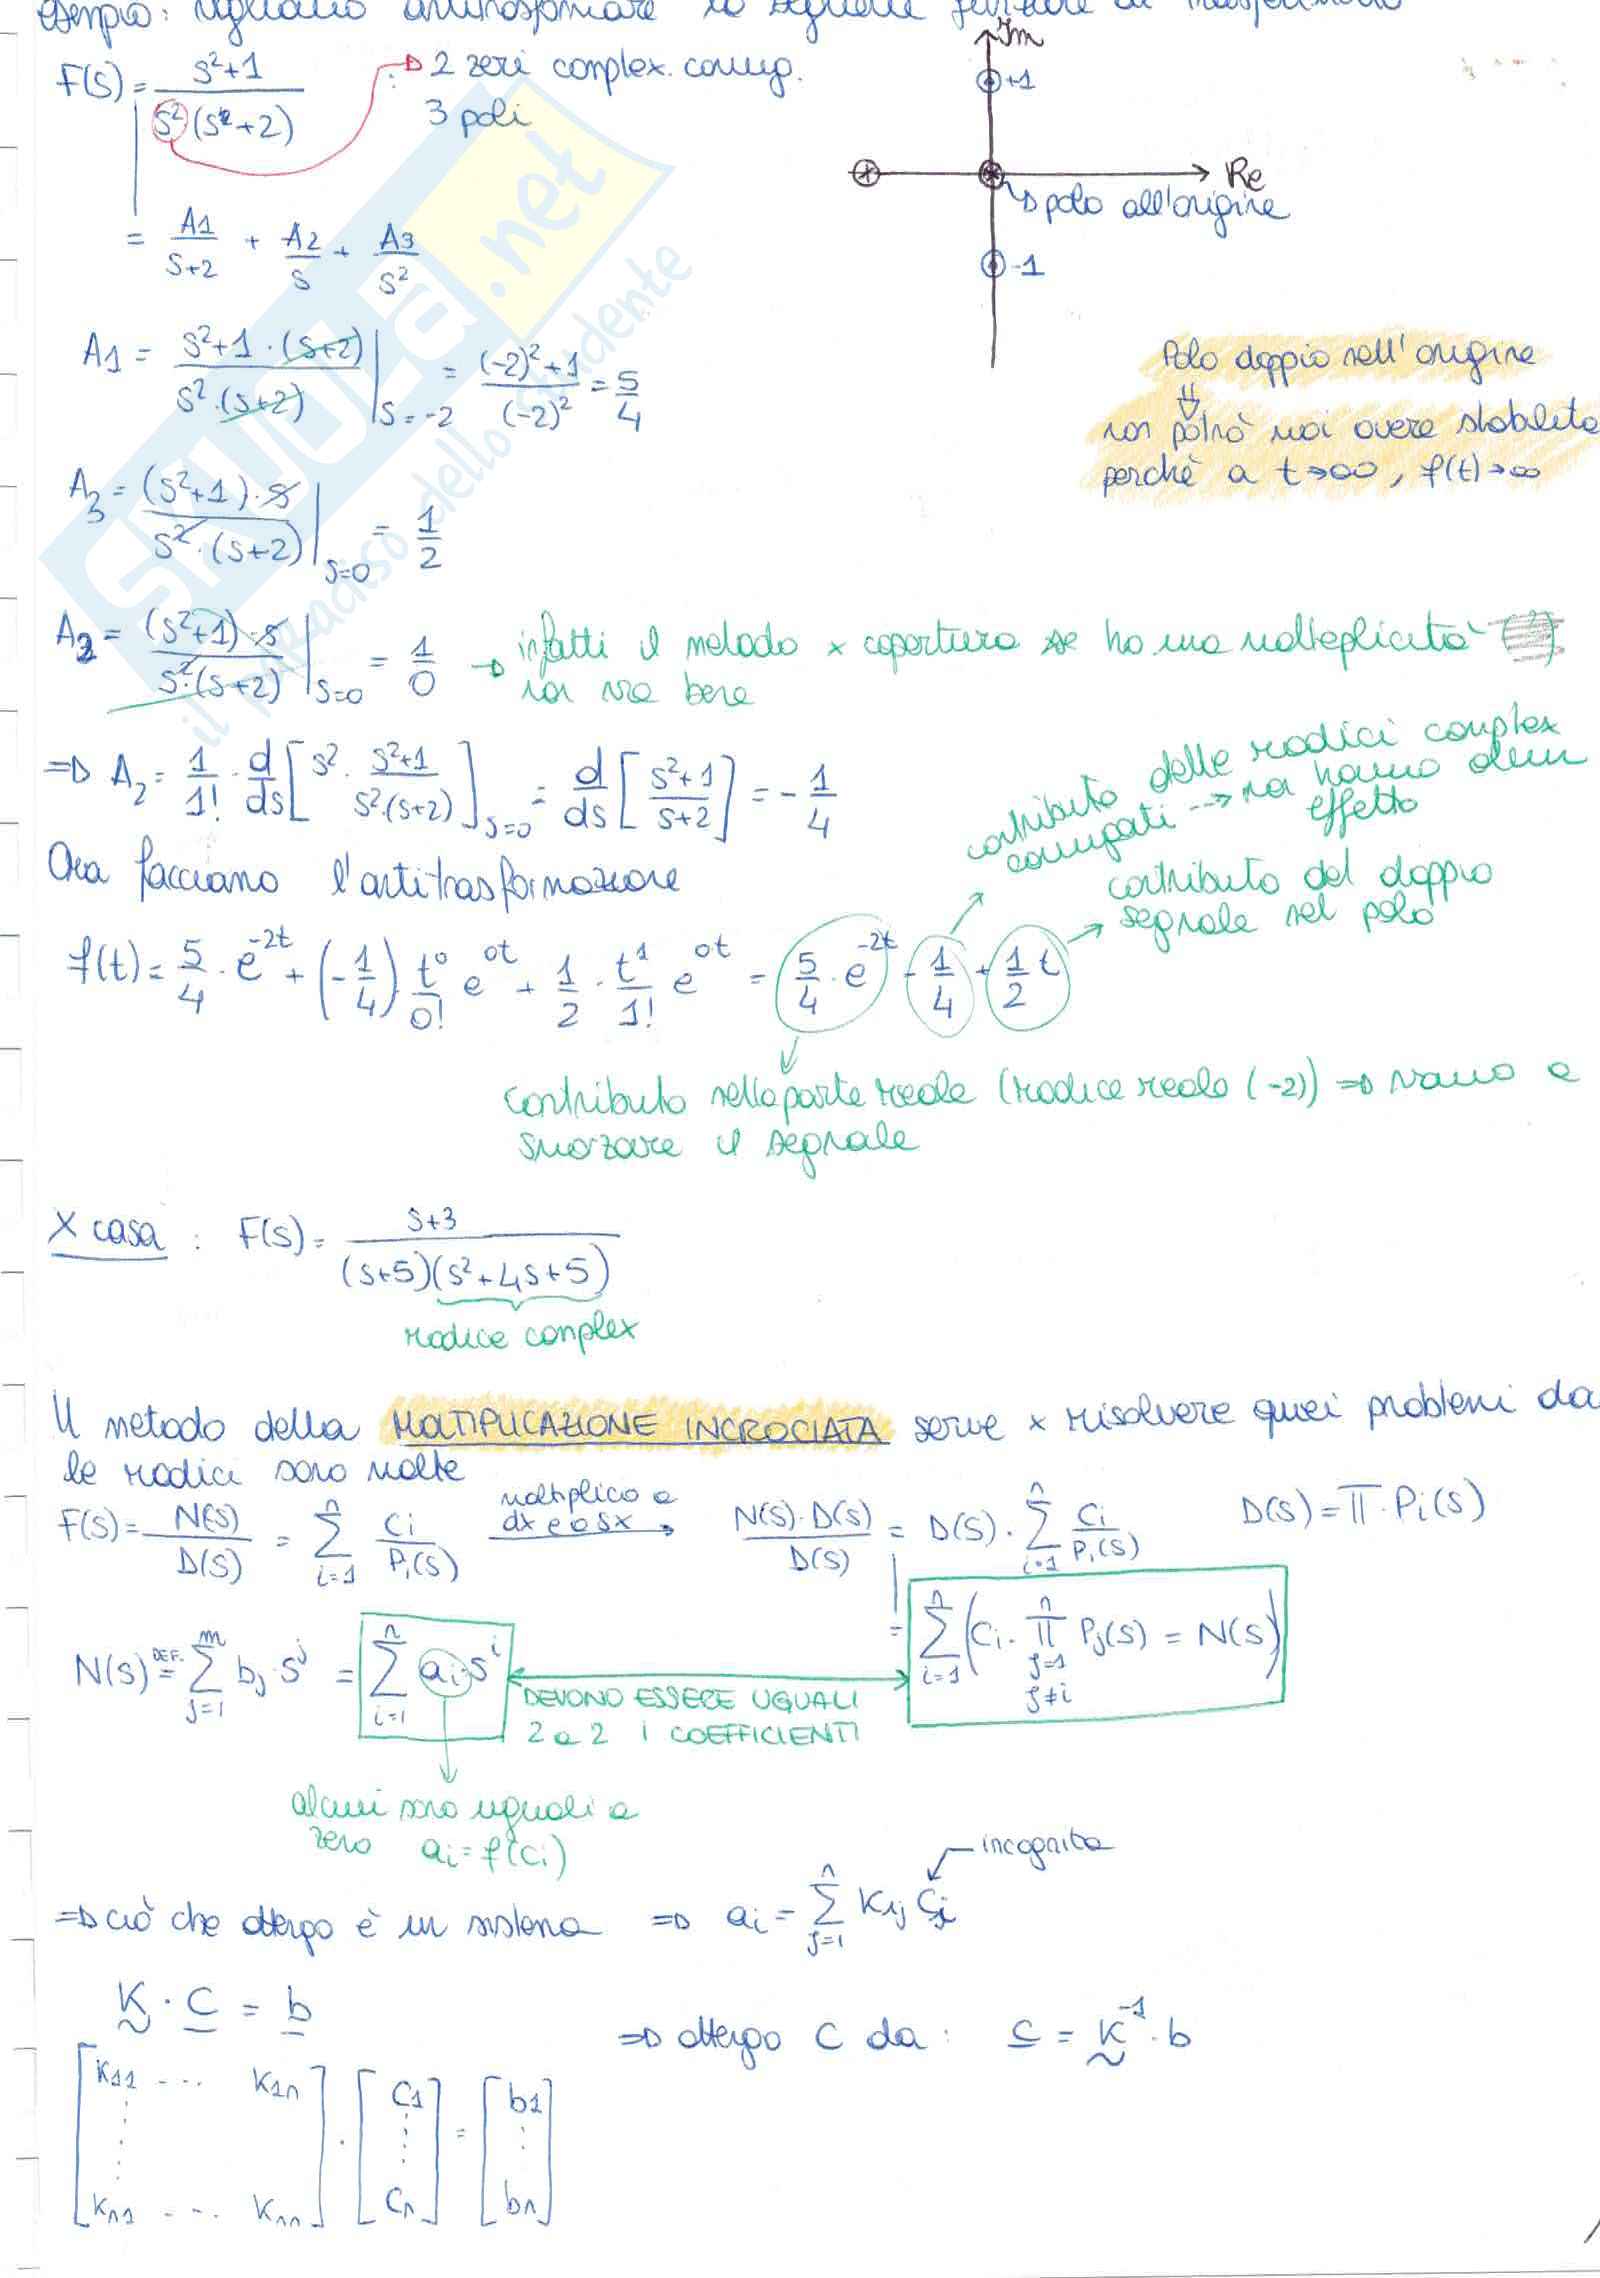 esempio: vogliamo antitrasformare la seguente funzione di trasferimento
F(s) = s²+1 / s²(s²+2) → 2 zeri compless. coniug.
3 poli
Im
+1
Re
polo all'origine
-1
= A1/s+2 + A2/s + A3/s²
A1 = s²+1·(s+2) / s²·(s+2) |s=-2 = (-2)²+1 / (-2)² = 5/4
Polo doppio nell'origine
⇓
non potrò mai avere stabilità
perchè a t→∞, f(t)→∞
A3 = (s²+1)·s / s²·(s+2) |s=0 = 1/2
A2 = (s²+1)·s / s²·(s+2) |s=0 = 1/0 → infatti il metodo x copertura se ho una molteplicità
non va bene
⇒ A2 = 1/1! · d/ds [s² · s²+1 / s²·(s+2)]s=0 = d/ds [s²+1 / s+2] = -1/4
contributo delle radici compless
coniugati → non hanno alcun
effetto
Ora facciamo l'antitrasformazione
contributo del doppio
segnale nel polo
f(t) = 5/4 · e^-2t + (-1/4) t⁰/0! e^0t + 1/2 · t¹/1! e^0t = 5/4 · e^-2t - 1/4 + 1/2 t
contributo nella parte reale (radice reale (-2)) ⇒ vanno a
smorzare il segnale
X casa : F(s) = s+3 / (s+5)(s²+4s+5)
radice compless
Il metodo della MOLTIPLICAZIONE INCROCIATA serve x risolvere quei problemi da
le radici sono molte
F(s) = N(s)/D(s) = Σ i=1 n Ci/Pi(s) moltiplico a dx e a sx → N(s)·D(s)/D(s) = D(s)· Σ i=1 n Ci/Pi(s) D(s) = Π·Pi(s)
N(s) =DEF. Σ j=1 m bj·s^j = Σ i=1 n ai·s^i
= Σ i=1 n (Ci· Π j=1 j≠i n Pj(s) = N(s))
DEVONO ESSERE UGUALI
2 a 2 I COEFFICIENTI
alcuni sono uguali a
zero ai = f(ci)
incognita
⇒ ciò che ottengo è un sistema ⇒ ai = Σ j=1 n Kij Cj
K · C = b
⇒ ottengo C da: C = K^-1 · b
[K11 --- K1n ... Kn1 --- Knn] · [C1 ... Cn] = [b1 ... bn]
SKUOLA.net
il paradiso dello studente